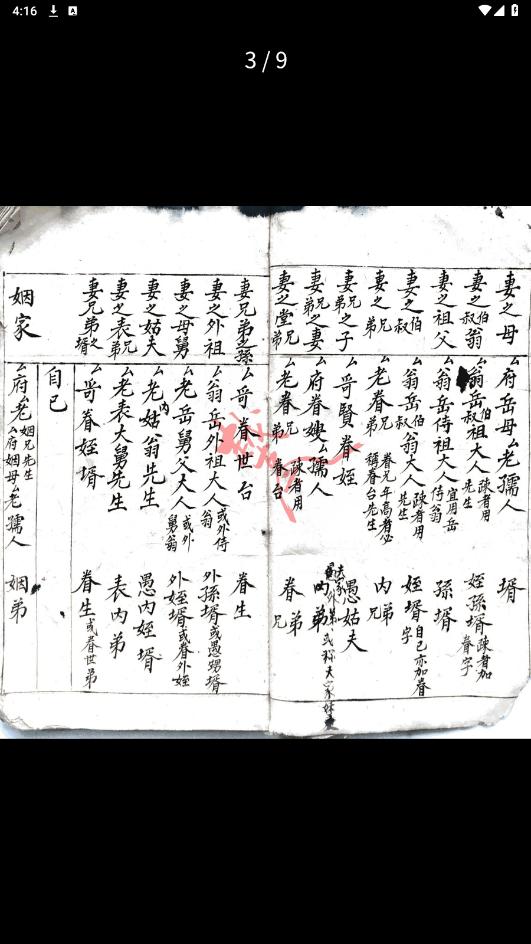 4:16
3/9
妻之母
厶府岳母厶老孺人
壻
妻之伯叔翁
厶翁岳伯叔祖大人 疎者用先生
姪孫壻 疎者加眷字
妻之祖父
厶翁岳侍祖大人 宜用岳侍翁
孫壻
妻之伯叔
厶翁岳伯叔翁大人 疎者用先生
姪壻 自己亦加眷字
妻之兄弟
厶老眷兄弟 眷兄年高者必稱眷台先生
内弟兄
妻兄弟之子
厶哥賢眷姪
愚姑夫
妻兄弟之妻
厶府眷嫂厶孺人
妻之堂兄弟
厶老眷兄弟 疎者用眷台
眷弟兄
妻兄弟之孫
厶哥眷世台
眷生
妻之外祖
厶翁岳外祖大人 或外侍翁
外孫壻 或愚甥壻
妻之母舅
厶老岳舅父大人 或外舅翁
外姪壻 或眷外姪
妻之姑夫
厶老内姑翁先生
愚内姪壻
妻之表兄弟
厶老表大舅先生
表内弟
妻兄弟之壻
厶哥眷姪壻
眷生 或眷世弟
自己
姻家
厶府厶老姻兄先生 厶府姻母厶老孺人
姻弟